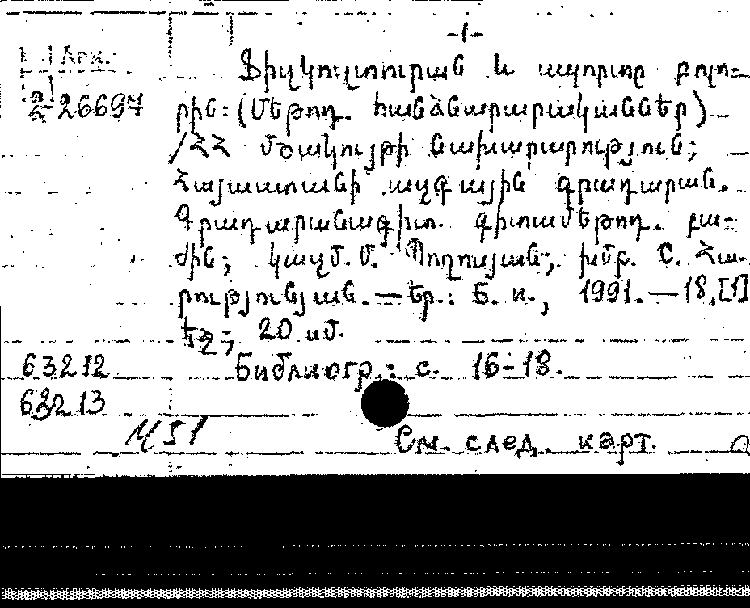 -1-
Арм.
2-26697
Ֆիզկուլտուրան և սպորտը բոլո-
րին: (Մեթոդ. հանձնարարականներ)
/ՀՀ Մշակույթի նախարարություն;
Հայաստանի ազգային գրադարան.
Գրադարանագիտ. գիտամեթոդ. բա-
ժին; կազմ. Մ. Պողոսյան; խմբ. Ս. Հա-
րությունյան. — Եր.: Б. и., 1991. — 18,[1]
էջ; 20 սմ.
63212 Библиогр.: с. 16-18.
63213
451
См. след. карт.